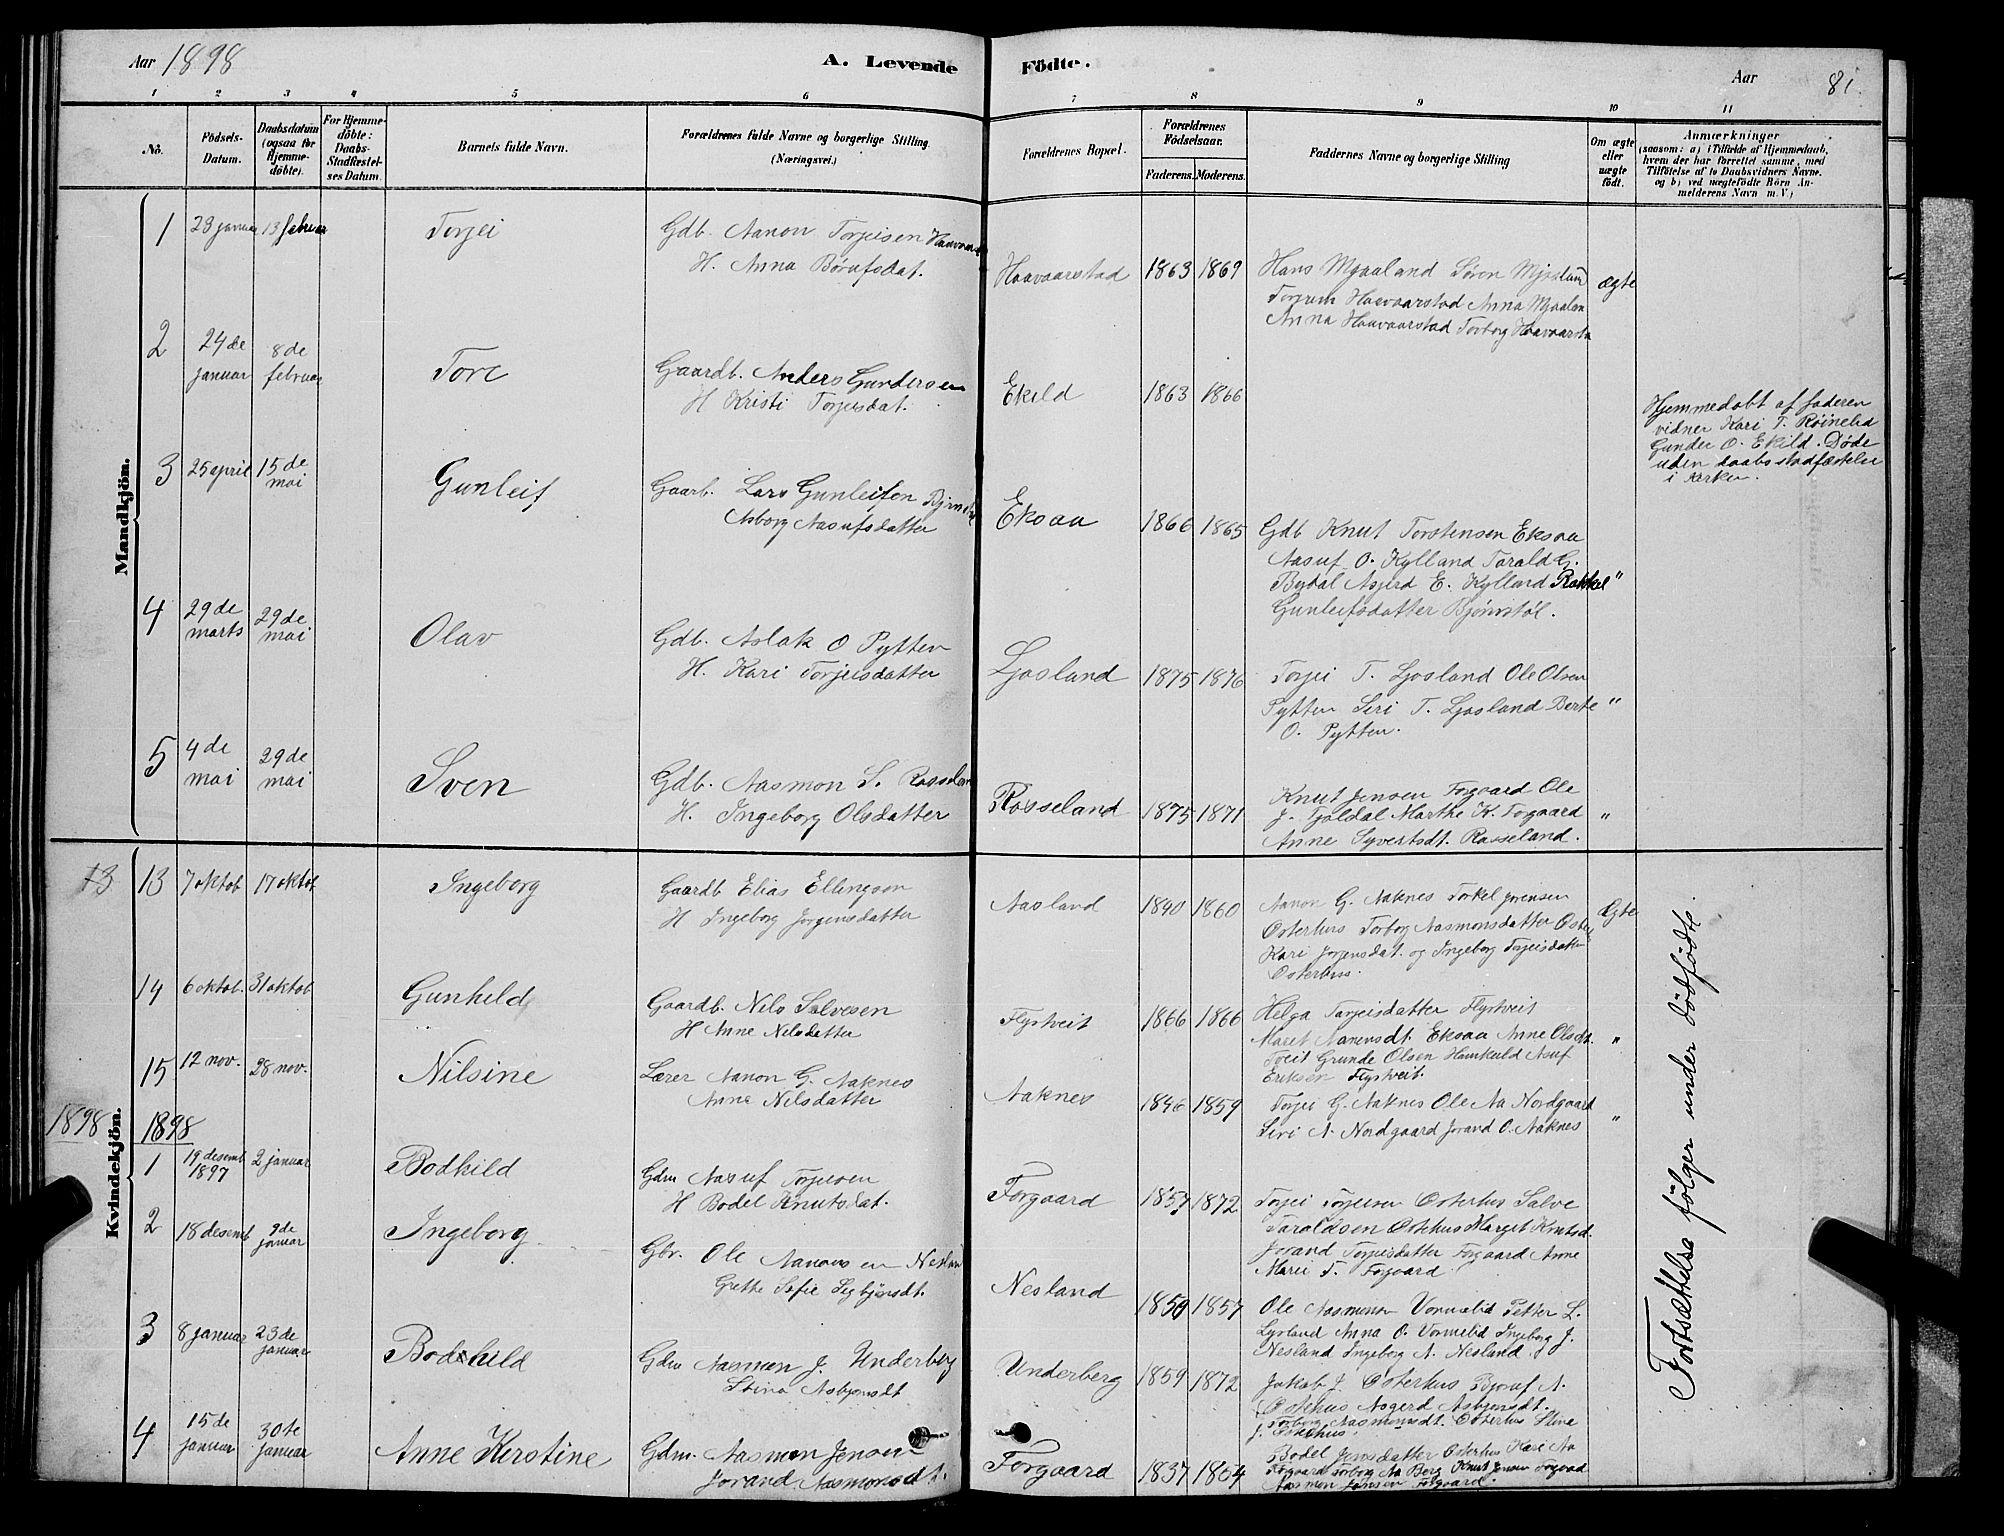 Aar 1898
A. Levende Födte.
Aar
81.
1 2 3 4 5 6 7 8 9 10 11
No.
Födsels-Datum.
Daabsdatum (ogsaa för Hjemme-döbte).
For Hjemme-döbte: Daabs-Stadfæstel-ses Datum.
Barnets fulde Navn.
Forældrenes fulde Navne og borgerlige Stilling (Næringsvei.)
Forældrenes Bopæl.
Forældrenes Födselsaar.
Faderens. Moderens.
Faddernes Navne og borgerlige Stilling
Om ægte eller uægte födt.
Anmærkninger
(saasom: a) i Tilfælde af Hjemmedaab,
hvem der har forrettet samme, med
Tilföielse af to Daabsvidners Navne.
og b) ved uægtefödte Börn An-
melderens Navn m. V.)
Mandkjön.
1 23 januar 13 februar Torjei
Gdb. Aanon Torjeisen
H. Anna Børufsdat.
Haavaarstad 1863 1869
Hans Mjaaland Søren
Torjum Haavaarstad Anna
Anna Haavaarstad Torborg
ægte
2 24 de januar 8 de februar Tore
Gaardb. Anders Gundersen
H Kristi Torjeisdat.
Ekild 1863 1866
Hjemmedøbt af faderen
vidner Kari T. Røinelid
Gunder O. Ekild. Døde
uden daabsstadfæstelse
i kirken.
3 25 april 15 de mai Gunleif
Gaarb. Lars Gunleifsen
Asborg Aasufsdatter
Eksaa 1866 1865
Gdb Knut Torstensen Eksaa
Aasuf O. Kylland Tarald G.
Bydal Asjerd E. Kylland Rakkel
Gunleifsdatter Bjørnstøl.
"
4 29 de marts 29 de mai Olav
Gdb. Aslak O Pytten
H. Kari Torjeisdatter
Ljosland 1875 1876
Torjei T. Ljosland Ole Olsen
Pytten Siri T. Ljosland Berte
O. Pytten.
"
5 4 de mai 29 de mai Sven
Gdb. Aasmon S. Rosseland
H. Ingeborg Olsdatter
Rosseland 1875 1871
Knut Jensen Forgaard Ole
J. Tjaldal Marthe K. Forgaard
Anne Syvertsdt. Rosseland.
"
Kvindekjön.
13 13 7 oktob. 17 oktob. Ingeborg
Gaardb Elias Ellingsen
H Ingeborg Jorgensdatter
Aasland 1840 1860
Aanon G. Aaknes Torkel
Osterhus Torborg Aasmonsdatter
Kari Jorgensdat. og Ingeborg Torjeisdatter
Osterhus.
Ægte
14 6 oktob. 31 oktob Gunhild
Gaardb. Nils Salvesen
H Anne Nilsdatter
Flystveit 1866 1866
Helga Tarjeisdatter Flystveit
Maret Eksaa Anne Olsdt.
Tveit Grunde Olsen Asuf
Eriksen Flystveit.
"
15 12 nov. 28 nov. Nilsine
Lærer Aanon G. Aaknes
Anna Nilsdatter
Aaknes 1846 1859
Torjei G. Aaknes Ole Aa Nordgaard
Siri A. Nordgaard Jorand O. Aaknes
"
1898 1898
1 19 desemb 1897 2 januar Bodhild
Gdm Aasuf Torjusen
H Bodel Knutsdat.
Forgaard 1857 1872
Torjei Torjusen Osterhus Salve
Taraldsen Osthus Marget Knutsd.
Jorand Torjeisdatter Forgaard Anne
Marie T. Forgaard
2 18 desemb 9 de januar Ingeborg.
Gbr. Ole Aanonsen Neslan
Grethe Sofie
Nesland 1850 1857
Ole Aasmonsn Vormelid Petter L.
Lysland Anna O. Vormelid Ingeborg J.
Nesland Ingeborg A. Nesland.
3 8 januar 23 de januar Bodhild
Gdm Aasmon J. Underberg
Stina Asbjønsdt
Underberg 1859 1872
Jakob J. Osterhus A.
Osterhus Asgerd Asbjønsdt.
Torborg Aasmonsdt. Osterhus Stine
J. Osterhus.
4 15 de januar 30 te januar Anne Kerstine
Gdm. Aasmon Jensen
Jorand Aasmonsdt.
Forgaard 1837 1854
Bodel Jensdatter Osterhus Kari Aa
Forgaard Torborg Aa Berg Knut Jensen Forgaad
Aasmon Jensen Forgaard.
Fortsættelse følger under dødfødte.